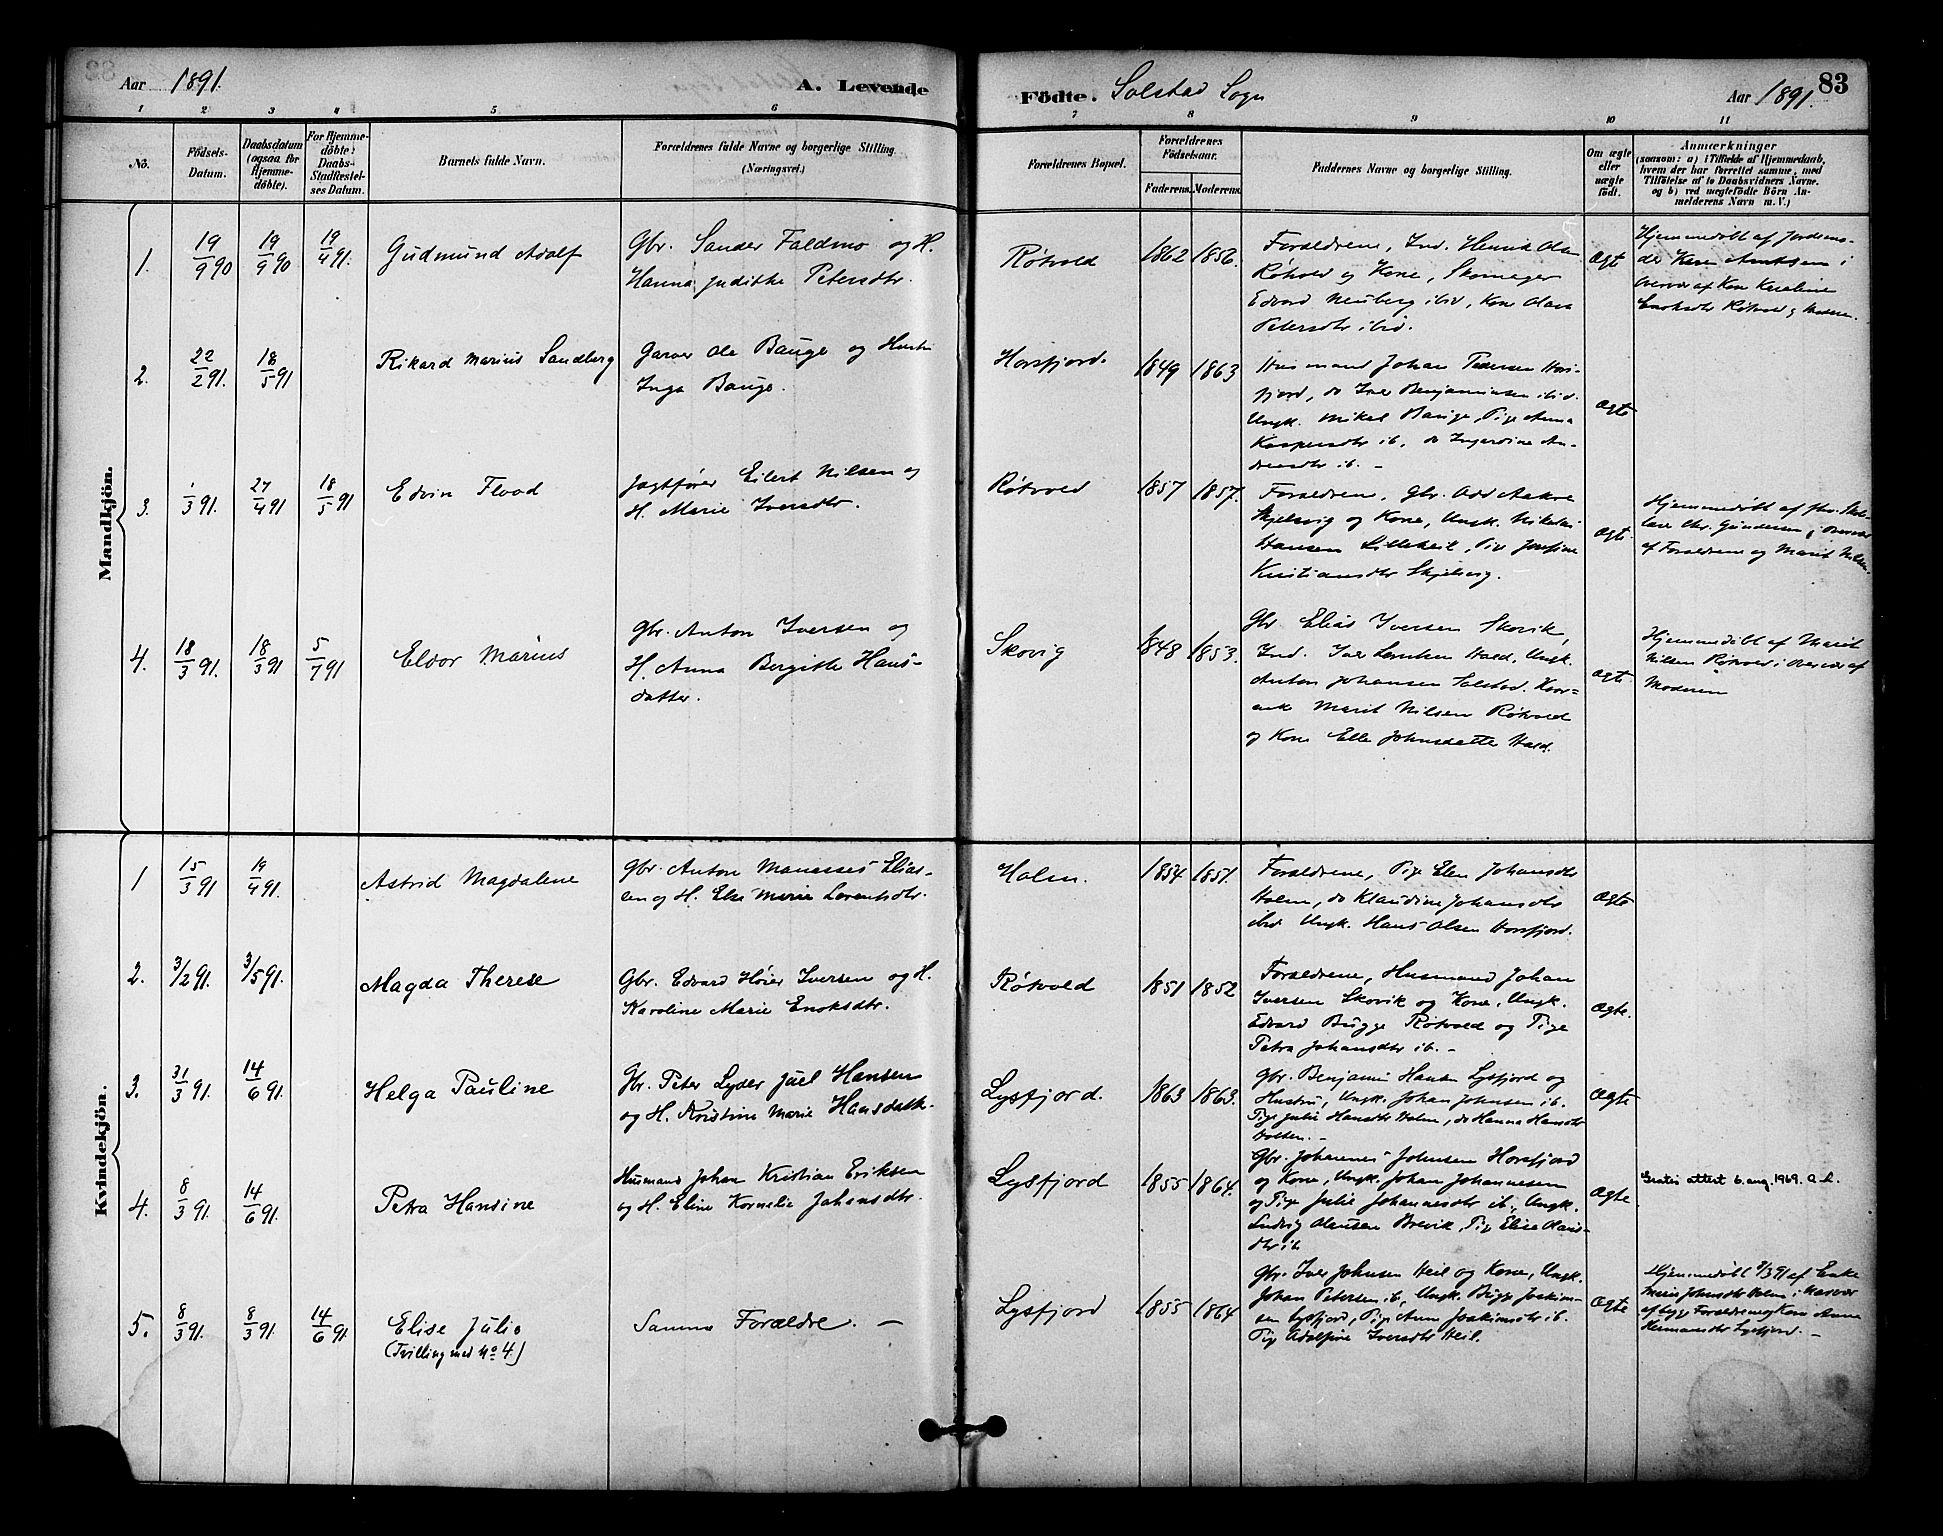 Aar 1891.
A. Levende
1 2 3 4 5 6
No.
Födsels-
Datum.
Daabsdatum
(ogsaa for
Hjemme-
döbte).
For Hjemme-
döbte:
Daabs-
Stadfæstel-
ses Datum.
Barnets fulde Navn.
Forældrenes fulde Navne og borgerlige Stilling.
(Næringsvei.)
Mandkjön.
1. 19/9 90 19/9 90 19/4 91. Gudmund Adolf
Gbr. Sander Faldmo og H.
Hanna Judithe Petersdtr.
2. 22/2 91. 18/5 91 Rikard Marius Sandberg
Garver Ole Bauge og Hustru
Inga Bauge.
3. 1/3 91. 27/4 91 18/5 91 Edvin Flood
Jagtfører Eilert Nilsen og
H. Marie Iversdtr.
4. 18/3 91. 18/3 91 5/7 91 Eldor Marius
Gbr. Anton Iversen og
H. Anna Bergitte Hans-
datter.
Kvindekjön.
1 15/3 91 19/4 91. Astrid Magdalene
Gbr. Anton Manasses Elias-
sen og H. Else Marie Lorentsdtr.
2. 3/2 91. 3/5 91. Magda Therese
Gbr. Edvard Høier Iversen og H.
Karoline Marie Enoksdtr.
3. 31/3 91. 14/6 91. Helga Pauline
Gbr. Peter Lyder Juel Hansen
og H. Kristine Marie Hansdatter.
4. 8/3 91. 14/6 91. Petra Hansine
Husmand Johan Kristian Eriksen
og H. Eline Kornelie Johansdtr.
5. 8/3 91. 8/3 91. 14/6 91 Elise Julie
(Tvilling med No 4.)
Samme Forældre. —
Födte. Solstad Sogn
Aar 1891. 83
7 8 9 10 11
Forældrenes Bopæl.
Forældrenes
Födselsaar.
Faderens. Moderens.
Faddernes Navne og borgerlige Stilling.
Om ægte
eller
uægte
födt.
Anmærkninger
(saasom: a) i Tilfælde af Hjemmedaab,
hvem der har forrettet samme, med
Tilföielse af to Daabsvidners Navne.
og b) ved uægtefödte Börn An-
melderens Navn m. V.)
Røtvold 1862 1856.
Forældrene, Ind. Henrik Olsen
Røtvold og Kone, Skomager
Edvard Neuberg ibid, Kone Olava
Petersdtr ibid.
Ægt
Hjemmedøbt af Jordemo-
der Karen Arntsen i
Overvær af Kone Karoline
Enoksdtr Røtvold og Moderen.
Horsfjord. 1849 1863
Husmand Johan Pedersen Hors-
fjord, do Iver Benjaminsen ibid.
Ungk. Mikal Bauge, Pige Anna
Kaspersdtr ib, do Ingerdine An-
dreasdtr ib. —
Ægte
Røtvold 1857 1857.
Forældrene, Gbr. Odd Aakre
Skjelsvig og Kone, Ungk. Nikolai
Hansen Lilleheil, Pige Josefine
Kristiansdtr Skjelsvig.
Ægte
Hjemmedøbt af Skole-
lærer Chr. Gundersen, i Overvær
af Forældrene og Marit Nilsen.
Skovig 1848 1853.
Gbr Elias Iversen Skovik,
Ind. Iver Lorntsen Hald, Ungk.
Anton Johansen Solstad. Kaar-
enke Marit Nilsen Røtvold
og Kone Elle Johnsdatter Hald.
Ægte
Hjemmedøbt af Marit
Nilsen Røtvold i Overvær af
Moderen
Holm. 1834 1851.
Forældrene, Pige Elen Johansdtr
Holm, do Klaudine Johansdtr
ibid. Ungk. Hans Olsen Horsfjord.
Ægte
Røtvold 1851 1852
Forældrene, Husmand Johan
Iversen Skovik og Kone, Ungk.
Edvard Bugge Røtvold og Pige
Petra Johansdtr ib. —
Ægte.
Lysfjord. 1863 1863.
Gbr. Benjamin Hansen Lysfjord og
Hustru, Ungk. Johan Johnsen ib.
Pige Julie Hansdtr Holm, do Hanna Hansdtr
Holten. —
Ægte
Lysfjord 1855 1864.
Gbr. Johannes Johnsen Horsfjord
og Kone, Ungk. Johan Johannesen
og Pige Julie Johannesdtr ib., Ungk.
Ludvig Olausen Brevik, Pige Elise Olaus-
dtr ib
Ægte
Gratis attest 6. aug. 1969. A. L.
Lysfjord 1855 1864
Gbr. Iver Johnsen Heil og Kone, Ungk.
Johan Petersen ib, Ungk. Bugge Joakim-
sen Lysfjord, Pige Anne Joakimsdtr ib.
Pige Adolfine Iversdtr Heil.
Ægte
Hjemmedøbt 8/3 91 af Enke
Marie Johnsdtr Holm, i Overvær
af begge Forældrene og Kone Anne
Hermansdtr Lysfjord. —